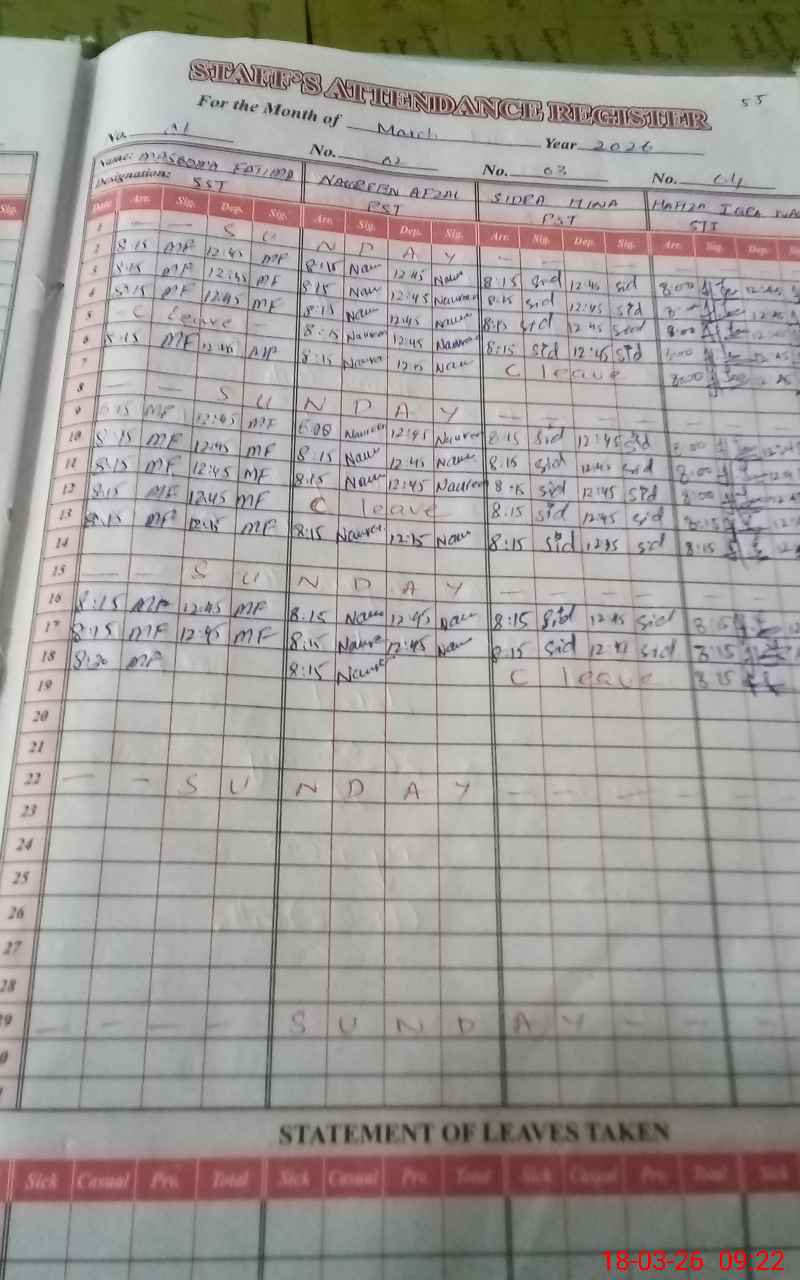 STAFF'S ATTENDANCE REGISTER
55
For the Month of March Year 2026
No. 01 No. 02 No. 03 No. 04
Name: MASOOMA FATIMA NAUREEN AFZAL SIDRA HINA HAFIZA IQRA
Designation: SST PST PST
Date Arr. Sig. Dep. Sig. Arr. Sig. Dep. Sig. Arr. Sig. Dep. Sig. Arr. Sig. Dep.
1 — — S U N D A Y — — — —
2 8:15 MF 12:45 MF 8:15 Nau 12:45 Nau 8:15 Sid 12:45 Sid 8:00 12:45
3 8:15 MF 12:45 MF 8:15 Nau 12:45 Naureen 8:15 Sid 12:45 Sid 8:00 12:45
4 8:15 MF 12:45 MF 8:15 Nau 12:45 Nau 8:15 Sid 12:45 Sid 8:00
5 - C leave - 8:15 Naureen 12:45 Naureen 8:15 Sid 12:45 Sid 8:00 12:45
6 8:15 MF 12:45 MF 8:15 Naureen 12:15 Nau C leave 8:00 12:45
7
8 — — S U N D A Y — — — —
9 8:15 MF 12:45 MF Naureen 12:45 Naureen 8:15 Sid 12:45 Sid 8:00 12:45
10 8:15 MF 12:45 MF 8:15 Nau 12:45 Nau 8:15 Sid 12:45 Sid 8:00
11 8:15 MF 12:45 MF 8:15 Nau 12:45 Naureen 8:15 Sid 12:45 Sid 8:00
12 8:15 MF 12:45 MF C leave 8:15 Sid 12:45 Sid 8:15
13 8:15 MF 12:15 MF 8:15 Naureen 12:15 Nau 8:15 Sid 12:45 Sid 8:15
14
15 — — S U N D A Y — — — —
16 8:15 MF 12:45 MF 8:15 Nau 12:45 Nau 8:15 Sid 12:45 Sid 8:15
17 8:15 MF 12:45 MF 8:15 Naure 12:45 Nau 8:15 Sid 12:45 Sid 8:15
18 8:20 MF 8:15 Naure C leave 8:15
19
20
21
22 — — S U N D A Y — — — —
23
24
25
26
27
28
29 — — — — S U N D A Y — — —
STATEMENT OF LEAVES TAKEN
Sick Casual Prv. Total Sick Casual Prv. Total Sick Casual Prv. Total Sick
18-03-26 09:22